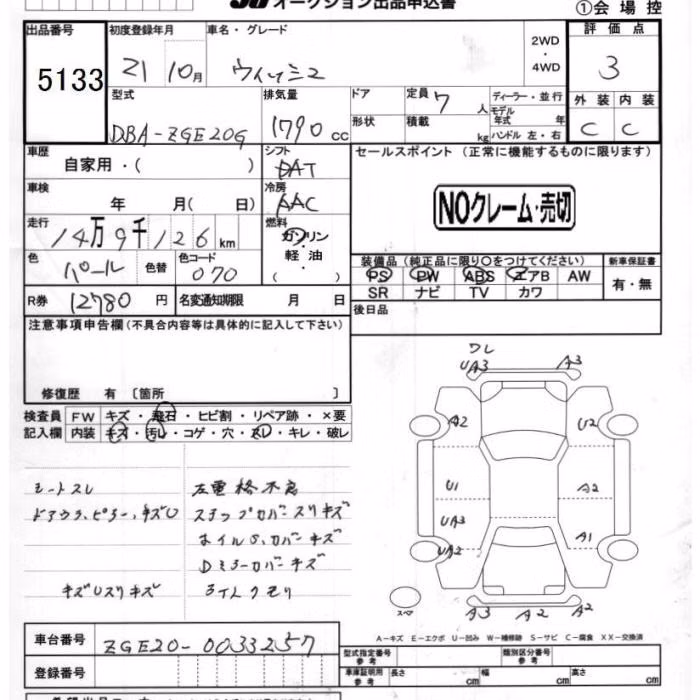 オークション出品申込書
①会場控
出品番号 初度登録年月 車名・グレード 評価点
5133 21 10月 ウィッシュ 2WD・4WD 3
型式 排気量 ドア 定員 7人 ディーラー・並行 外装 内装
DBA-ZGE20G 1790cc 形状 積載 kg モデル年式 年 ハンドル 左・右 C C
車歴 自家用・( ) シフト DAT セールスポイント (正常に機能するものに限ります)
車検 年 月( 日) 冷房 AAC NOクレーム・売切
走行 14万9千126km 燃料 ガソリン・軽油・( )
色 パール 色替 色コード 070
装備品(純正品に限り○をつけてください) 新車保証書
PS PW ABS エアB AW 有・無
SR ナビ TV カワ
R券 12780円 名変通知期限 月 日 後日品
注意事項申告欄(不具合内容等は具体的に記入して下さい)
修復歴 有 〔箇所 〕
検査員 FW キズ・飛石・ヒビ割・リペア跡・×要
記入欄 内装 キズ・汚レ・コゲ・穴・スレ・キレ・破レ
シートスレ
ドアウチ、ピラー、キズU
キズUスリキズ
左電格不良
ステップカバースリキズ
ホイルS、カバーキズ
Dミラーカバーキズ
ライトクモリ
ワレ
UA3 A3
A2 U2
U1 A2
UA3
UA2 A1
スペア
A3 A2 A2
A-キズ E-エクボ U-凹み W-補修跡 S-サビ C-腐食 XX-交換済
車台番号 ZGE20-0033257
登録番号
型式指定番号 参考 類別区分番号 参考
車庫証明用 参考 長さ cm 幅 cm 高さ cm